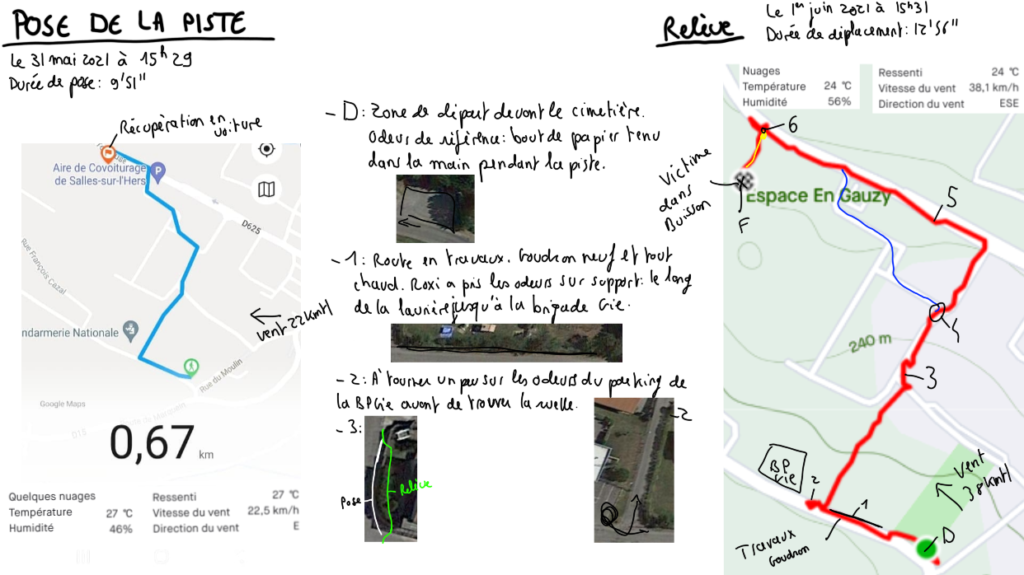 POSE DE LA PISTE
Le 31 mai 2021 à 15h29
Durée de pose: 9'51"
Récupération en
voiture
Aire de Covoiturage
de Salles-sur-l'Hers
P
D625
Rue François Cazal
ndarmerie Nationale
vent 22 km/h
Rue du Moulin
Google Maps
D15
0,67 km
Quelques nuages
Température 27 °C
Humidité 46%
Ressenti 27 °C
Vitesse du vent 22,5 km/h
Direction du vent E
- D: Zone de départ devant le cimetière.
Odeur de référence: bout de papier tenu
dans la main pendant la piste.
- 1: Route en travaux. Goudron neuf et tout
chaud. Roxi a pis les odeurs sur support: le long
de la laurière jusqu'à la brigade Gie.
- 2: A tourner un peu sur les odeurs du parking de
la BPGie avant de trouver la ruelle.
- 3:
Pose
Relève
-2
Relève
Le 1er juin 2021 à 15h31
Durée de déplacement: 12'56"
Nuages
Température 24 °C
Humidité 56%
Ressenti 24 °C
Vitesse du vent 38,1 km/h
Direction du vent ESE
6
Victime
dans
Buisson
F
Espace En Gauzy
5
4
240 m
3
BP
Gie
2
1
Vent
38 km/h
D
Travaux
Goudron